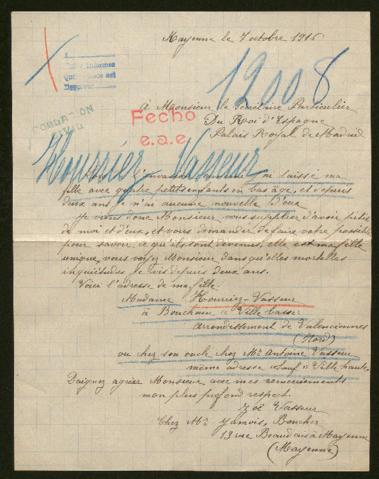 Mayenne le 7 octobre 1916
12008
A Monsieur le Secrétaire Particulier
Du Roi d'Espagne
Palais Royal de Madrid
Fecho
e.a.e.
Hourriez-Vasseur
j'ai laissé ma
fille avec quatre petits enfants en bas âge, et depuis
deux ans je n'ai aucune nouvelle d'eux
Je viens donc Monsieur vous supplier d'avoir pitié
de moi et d'eux, et vous demander de faire votre possible
pour savoir ce qu'ils sont devenus, elle est ma fille
unique, vous voyez Monsieur dans quelles mortelles
inquiétudes je suis depuis deux ans.
Voici l'adresse de ma fille
Madame Hourriez-Vasseur
à Bouchain Ville basse
arrondissement de Valenciennes
(Nord)
ou chez son oncle chez Mr Antoine Vasseur
même adresse sauf Ville haute
Daignez agréer Monsieur avec mes remerciements
mon plus profond respect
Zoé Vasseur
Chez Mr Boucher
13 rue à Mayenne
(Mayenne)